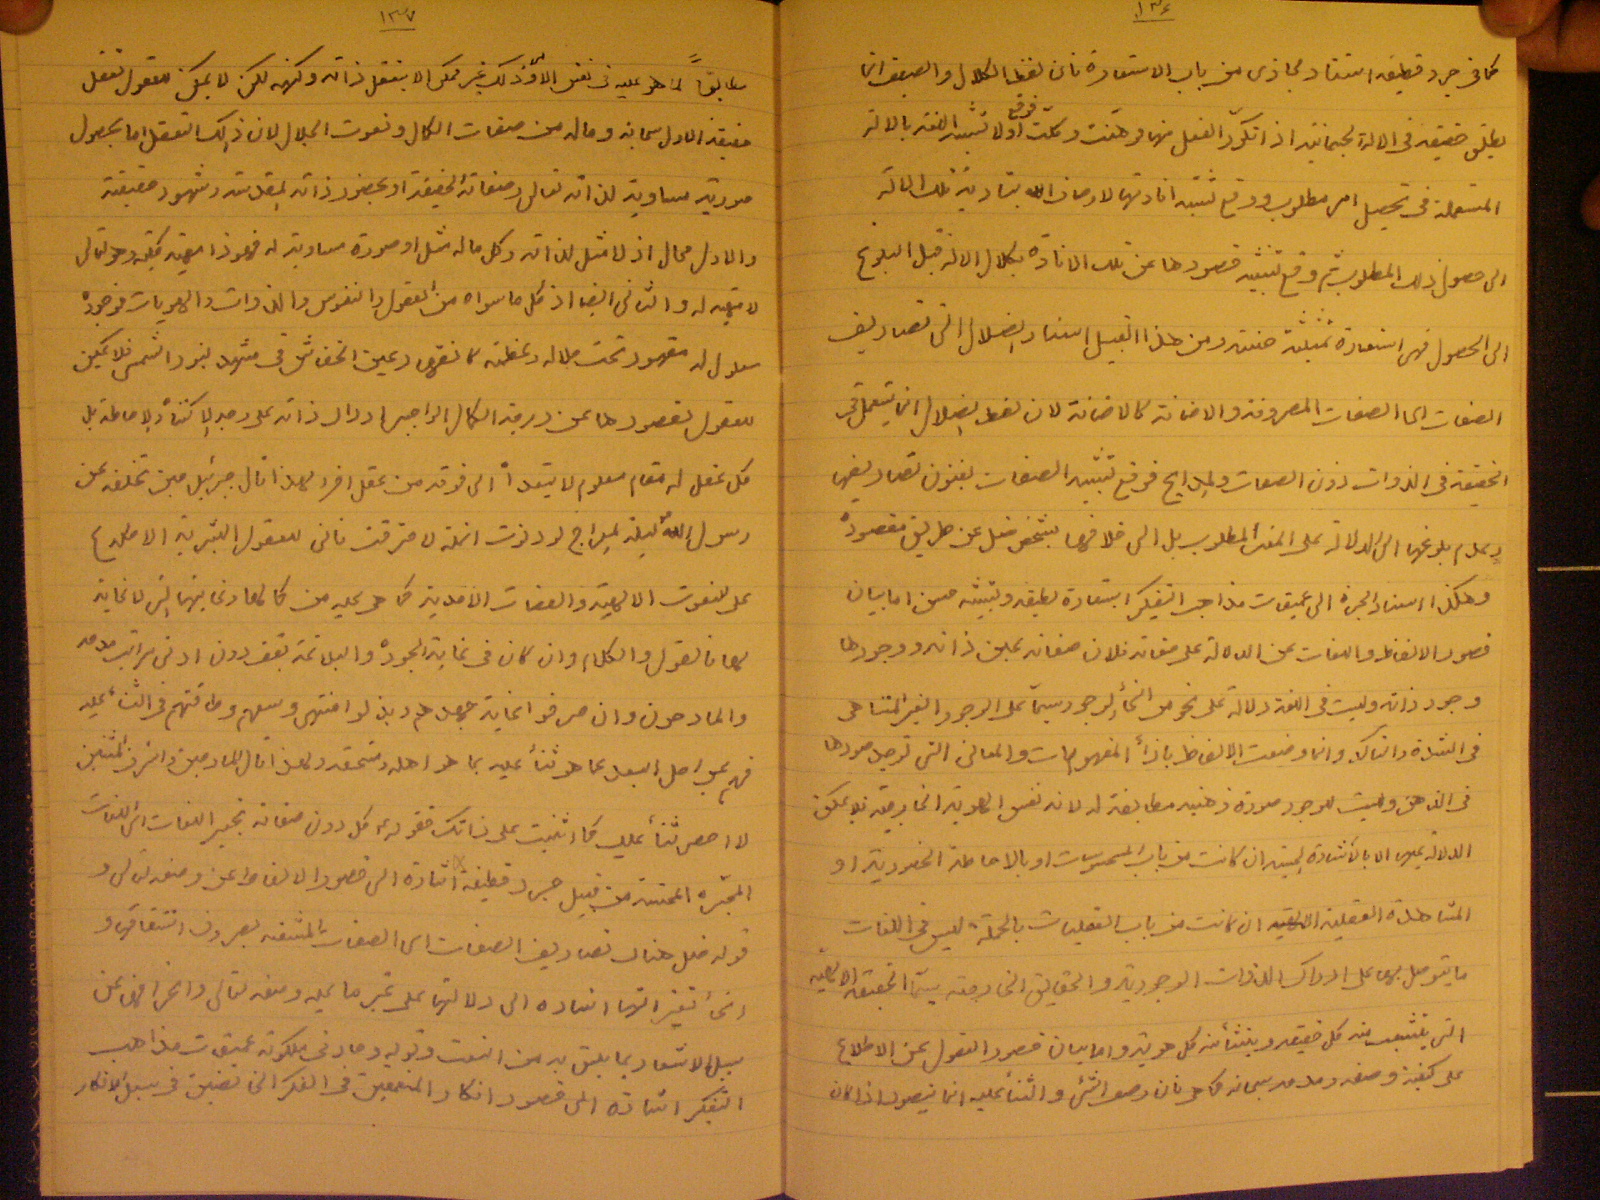 ١٣٦
كما فى جرد قطيفة استناد مجازى من باب الاستعارة فان لفظ الكلال والصيغة انما
يطلق حقيقة فى الالة الجسمانية اذا تكرر الفعل منها وهنت وكلت اولا فوقع تشبيه اللغة بالالة
المستعملة فى تحصيل امر مطلوب ووقع تشبيه افادتها لاوصاف الله بتادية تلك الالة
الى حصول ذلك المطلوب ثم وقع تشبيه قصورها عن تلك الافادة بكلال الالة قبل البلوغ
الى الحصول فهى استعارة تمثيلية حسنة ومن هذا القبيل اسناد الضلال الى تصاريف
الصفات اى الصفات المصروفة والاضافة كالاضافة لان لفظ الضلال انما يستعمل فى
الحقيقة فى الذوات دون الصفات والمدايح فوقع تشبيه الصفات بفنون تصاريفها
وعدم بلوغها الى الدلالة على المعنى المطلوب بل الى خلافها بشخص ضل عن طريق مقصوده
وهكذا اسناد الحيرة الى عميقات مذاهب التفكير استعارة لطيفة وتشبيه حسن اما بيان
قصور الالفاظ واللغات عن الدلالة على صفاته فلان صفاته عين ذاته ووجودها
وجود ذاته وليست فى اللغة دلالة على نحو من انحاء الوجود سيما على الوجود الغير المتناهى
فى الشدة والتاكد وانما وضعت الالفاظ بازاء المفهومات والمعانى التى توجد صورها
فى الذهن وليست للوجود صورة ذهنية مطابقة له لانه نفس الهوية الخارجية فلا يمكن
الدلالة عليها الا بالاشارة الحسية ان كانت من باب المحسوسات او بالاحاطة الحضورية او
المشاهدة العقلية ان كانت من باب العقليات بالجملة ليس فى اللغات
ما يتوصل بها على ادراك الذوات الوجودية والحقايق الخارجية سيما الحقيقة الالهية
التى يتشعب منه كل حقيقة وينشأ منه كل هوية واما بيان قصور العقول عن الاطلاع
على كيفية وصفه ومدحه سبحانه كما هو فان وصف الشئ والثناء عليه انما يتصور اذا كان
١٣٧
مطابقاً لما هو عليه فى نفس الامر وذلك غير ممكن الا بتعقل ذاته وكنهه لكن لا يمكن للعقول تعقل
حقيقة الاول سبحانه وماله من صفات الكمال ونعوت الجلال لان ذلك التعقل اما بحصول
صورة مساوية لذاته تعالى وصفاته الحقيقة او بحضور ذاته المقدسة وشهود حقيقته
والاول محال اذ لا مثل لذاته وكل ماله مثل او صورة مساوية له فهو ذا مهية كلية وهو تعالى
لا مهية له والثانى ايضا اذ كل ما سواه من العقول والنفوس والذوات والهويات فوجوده
معلول له مقهور تحت جلاله وعظمته كانقهار عين الخفاش فى مشهد نور الشمس فلا يمكن
للعقول لقصورها عن درجة الكمال الواجبى ادراك ذاته على وجه الاكتناه والاحاطة بل
كل عقل له مقام معلوم لا يتعداه الى فوقه من عقل اخر ولهذا قال جبرئيل حين تخلف عن
رسول الله ليلة المعراج لو دنوت انملة لاحترقت فانى للعقول البشرية الاطلاع
على النعوت الالهية والصفات الاحدية كما هى عليه من كمالها وغايتها التى لا غاية
لها فالقول والكلام وان كان فى غاية الجودة والبلاغة يقف دون ادنى مراتب مدحه
والمادحون وان صرفوا غاية جهدهم وبذلوا منتهى وسعهم وطاقتهم فى الثناء عليه
فهم بمراحل البعد عما هو ثناء عليه بما هو اهله ومستحقه ولهذا قال المادحين واشرف المثنين
لا احصى ثناء عليك كما اثنيت على نفسك فقوله كل دون صفاته تحبير اللغات اى اللغات
المحبرة المحسنة من قبيل جرد قطيفة اشارة الى قصور الالفاظ عن وصفه تعالى و
قوله ضل هناك تصاريف الصفات اى الصفات المشتقة بصروف اشتقاقها و
انحاء تغيراتها اشاره الى دلالتها على غير ما عليه وصفه تعالى وانحرافها عن
سبيل الاشعار بما يليق به من النعت وقوله وحار فى ملكوته عميقات مذاهب
التفكر اشارة الى قصور افكار المتعمقين فى الفكر فى سبيل الافكار